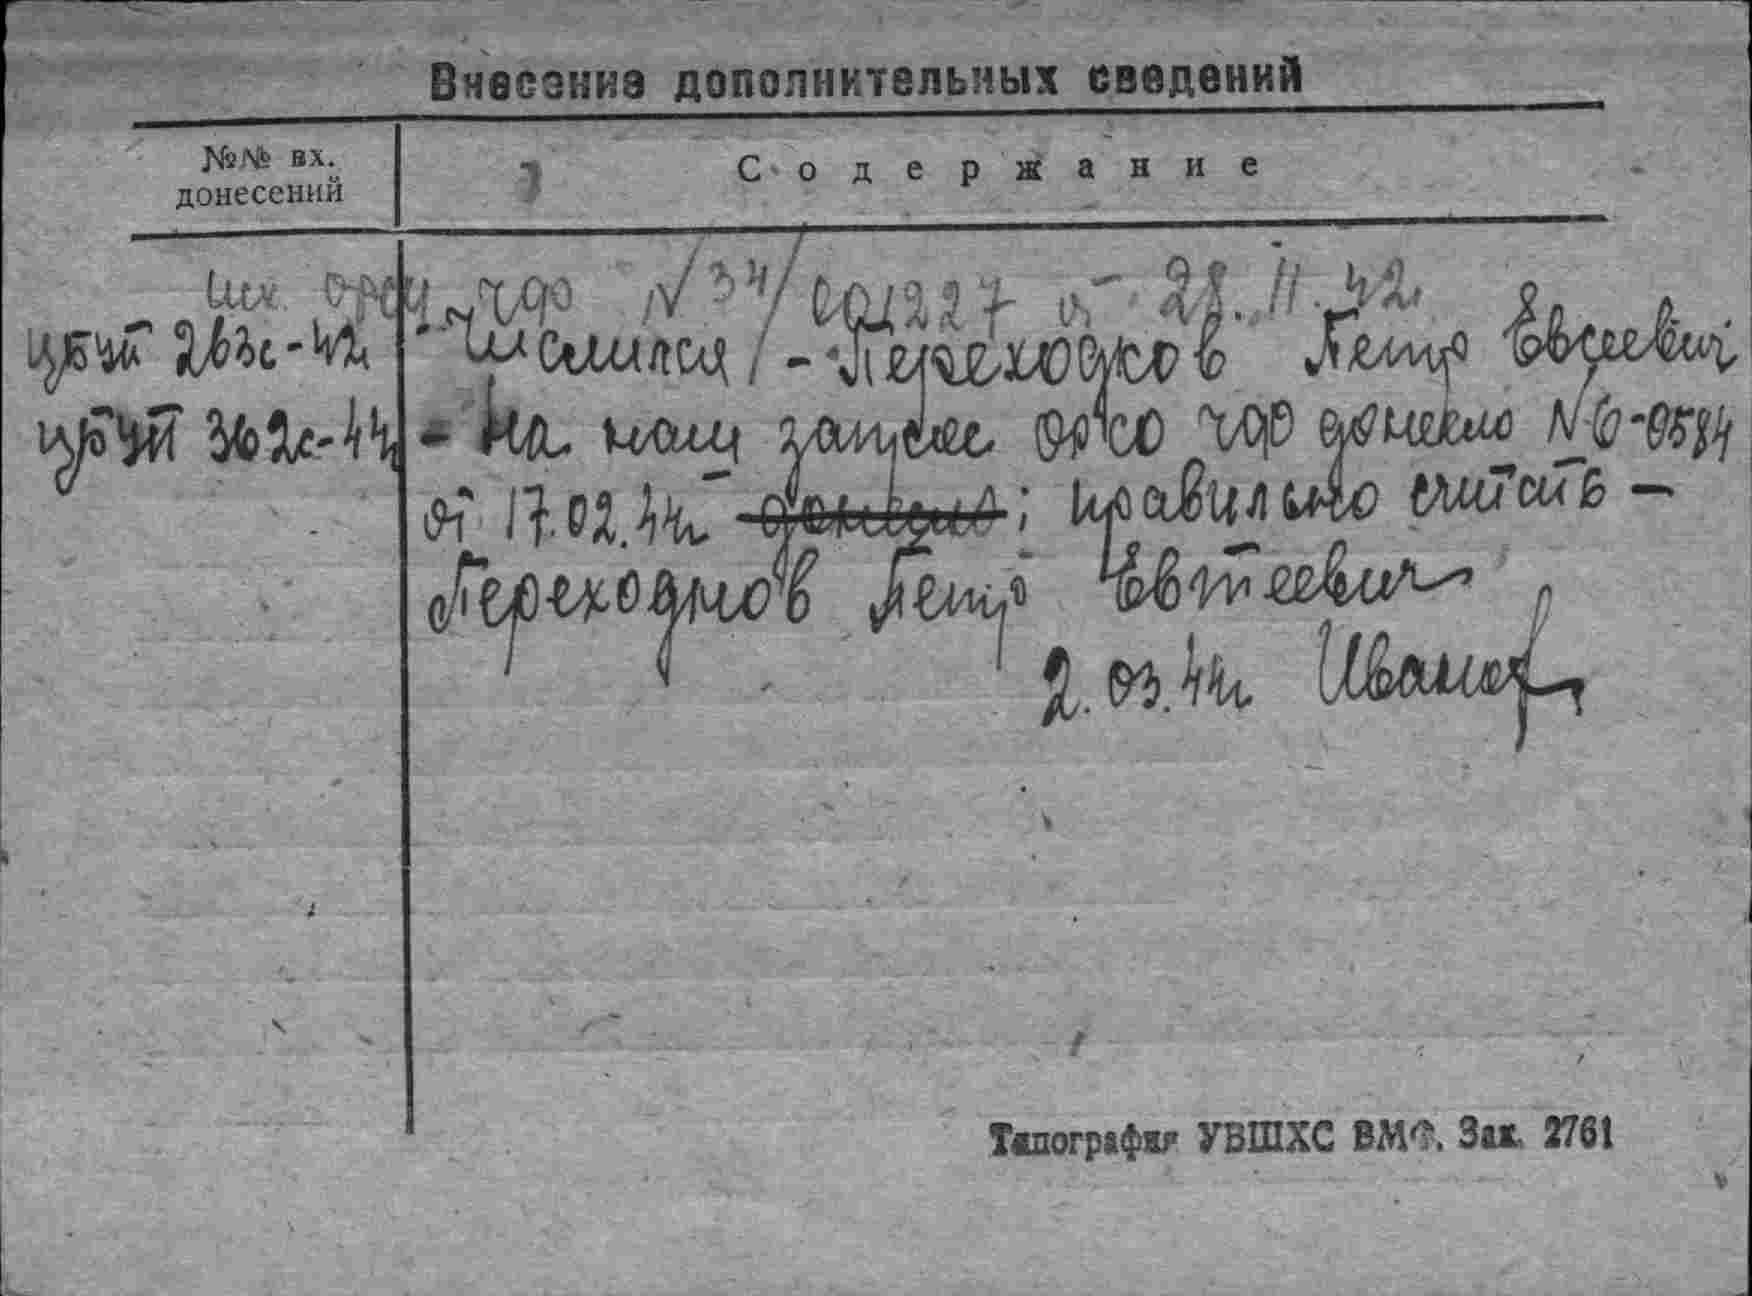 Внесение дополнительных сведений
№№ вх.
донесений
Содержание
исх. № 34/ 001227 от 28.11.42.
263с-42 Числился / - Переходков Петр Евсеевич
362с-44 - На наш запрос ОРСО ЧФ донесло № 6-0584
от 17.02.44г донесено; правильно считать -
Переходнов Петр Евтеевич
2.03.44г Иванов
Типография УВШХС ВМФ. Зак. 2761